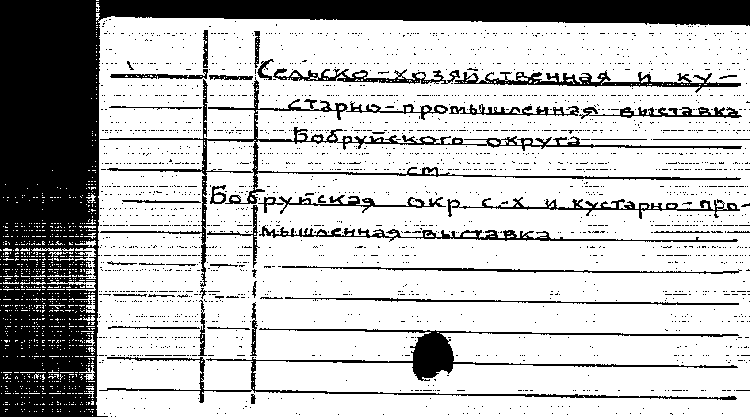 Сельско-хозяйственная и ку-
старно-промышленная выставка
Бобруйского округа.
см.
Бобруйская окр. с-х и кустарно-про-
мышленная выставка.